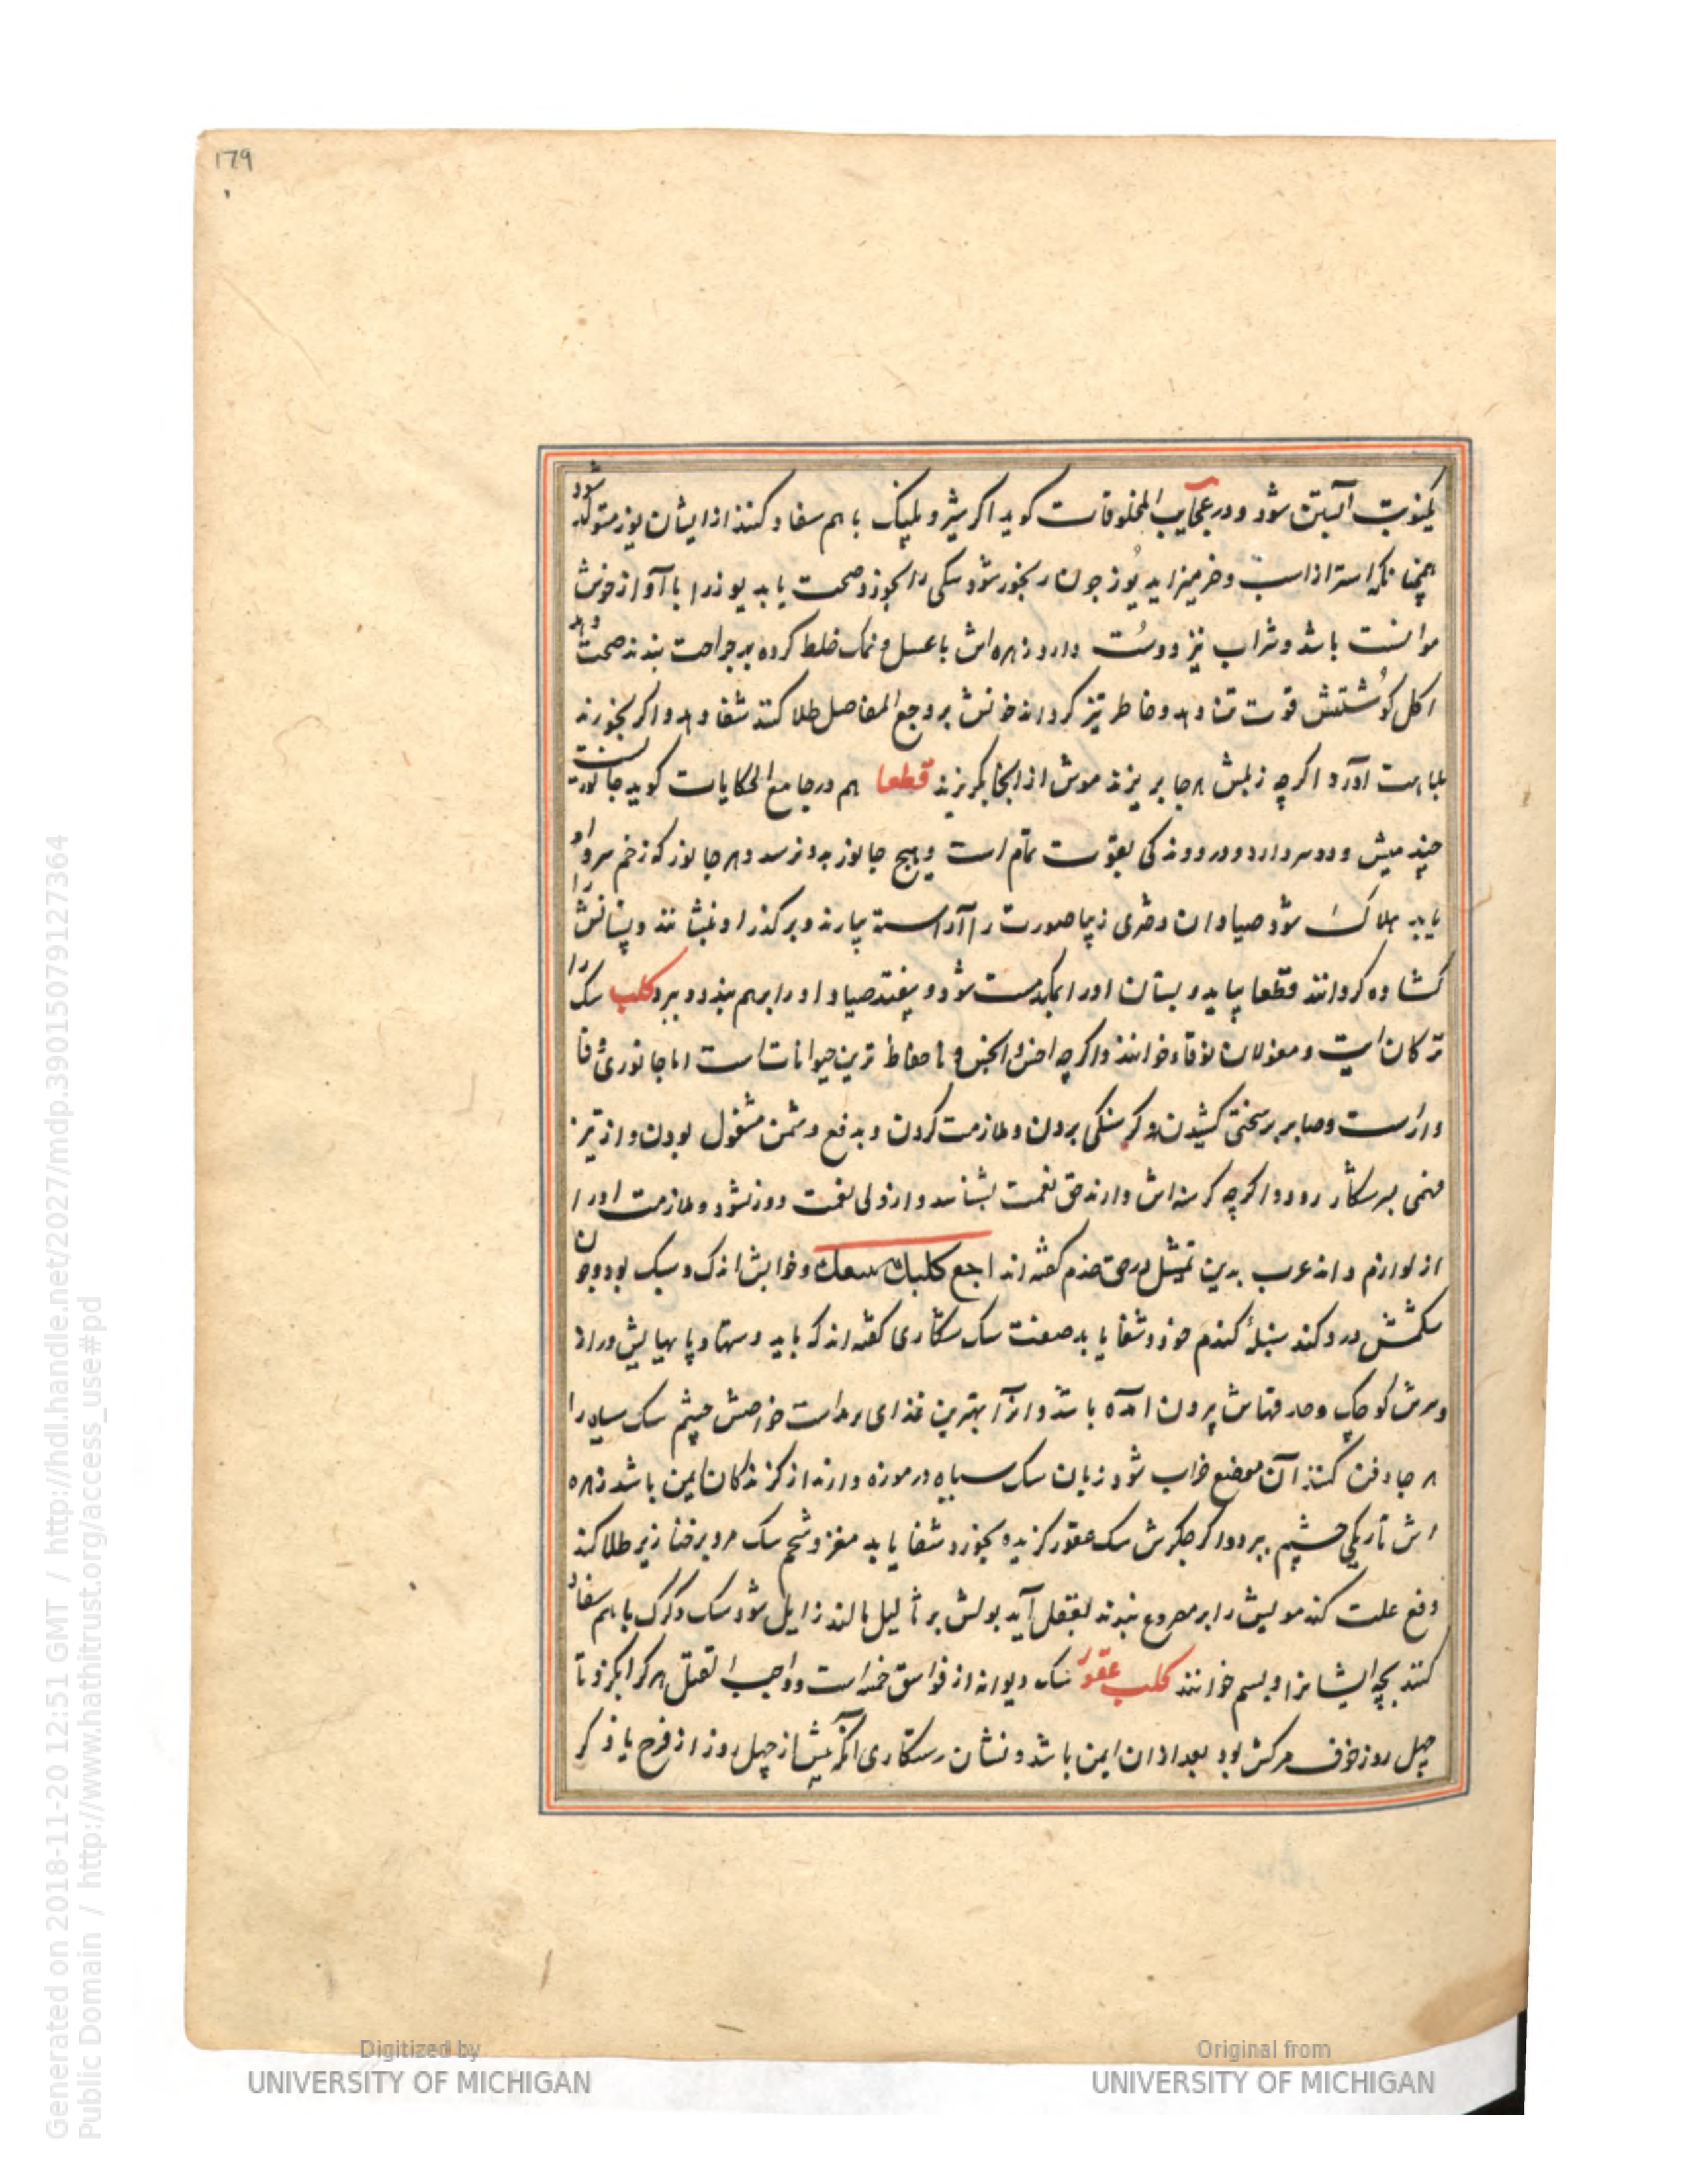 179
یکنوبت آبستن شود و در عجایب المخلوقات کوید اکر شیر و پلنک باهم سفاد کنند از ایشان یوز متولد شود
همچنانکه استر از اسب و خر میزاید یوز چون رنجور شود سکی را بخورد صحت یابد یوز را با آواز خوش
موانست باشد و شراب نیز دوست دارد زهره اش با عسل و نمک خلط کرده بر جراحت بندند صحت دهد
اکل کوشتش قوت تن دهد و خاطر تیز کرداند خونش بر وجع المفاصل طلا کنند شفا دهد و اکر بخورند
بلباهت آورد اکرچه زبلش هر جا بریزند موش از آنجا بکریزد قطعا هم در جامع الحکایات کوید جانوریست
چند میش و دو سر دارد و در دوندکی بقوت تمام است و هیچ جانور بدو نرسد و هر جانور که زخم سر او
یابد هلاک شود صیادان دختری زیبا صورت را آراسته بیارند و بر کذر او بنشانند و پستانش را
کشاده کردانند قطعا بیاید و پستان او را بمکد مست شود و بیفتد صیاد او را برهم بندد و ببرد کلب سک را
ترکان ایت و مغولان نوقاء خوانند و اکرچه اخس الجنس و ناحفاظ ترین حیوانات است اما جانوری وفا
دار است و صابر بر سختی کشیدن و کرسنکی بردن و ملازمت کردن و بدفع دشمن مشغول بودن و از تیز
فهمی بر شکار رود و اکرچه کرسنه اش دارند حق نعمت بشناسد و از ولی نعمت دور نشود و ملازمت او را
از لوازم داند عرب بدین تمثیل در حق خدم کفته اند اجع کلبک یتبعک و خوابش اندک و سبک بود و چون
شکمش درد کند سنبله کندم خورد و شفا یابد صفت سک شکاری کفته اند که باید دستها و پاهایش دراز
و سرش کوچک و حدقهاش بیرون آمده باشد و از آن بهترین غذای مردست خواصش چشم سک سیاه را
هر جا دفن کنند آن موضع خراب شود زبان سک سیاه در موزه دارند از کزندکان ایمن باشد زهره
اش تاریکی چشم ببرد و اکر جکرش سک عقور کزیده بخورد شفا یابد مغز و شحم سک مرده بر خنازیر طلا کنند
دفع علت کند مویش را بر مصروع بندند بعقل آید بولش بر ثآلیل مالند زایل شود سک و کرک باهم سفاد
کنند بچه ایشانرا دیسم خوانند کلب عقور سک دیوانه از فواسق خمسه است و واجب القتل هر کرا بکزد تا
چهل روز خوف مرکش بود بعد از آن ایمن باشد و نشان رستکاری آنکه پیش از چهل روز از فرج یا ذکر